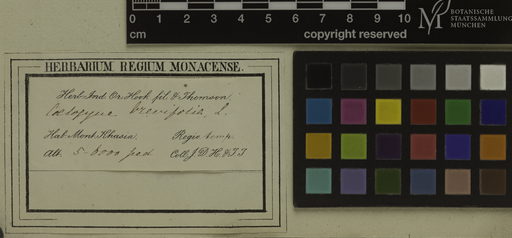 0 1 2 3 4 5 6 7 8 9 10
cm copyright reserved
BOTANISCHE
STAATSSAMMLUNG
MÜNCHEN
HERBARIUM REGIUM MONACENSE.
Herb. Ind. Or. Hook. fil. & Thomson.
Hab. Mont. Khasia. Regio temp.
Alt. 5-6000 ped Coll. J. D. H. & T. T.